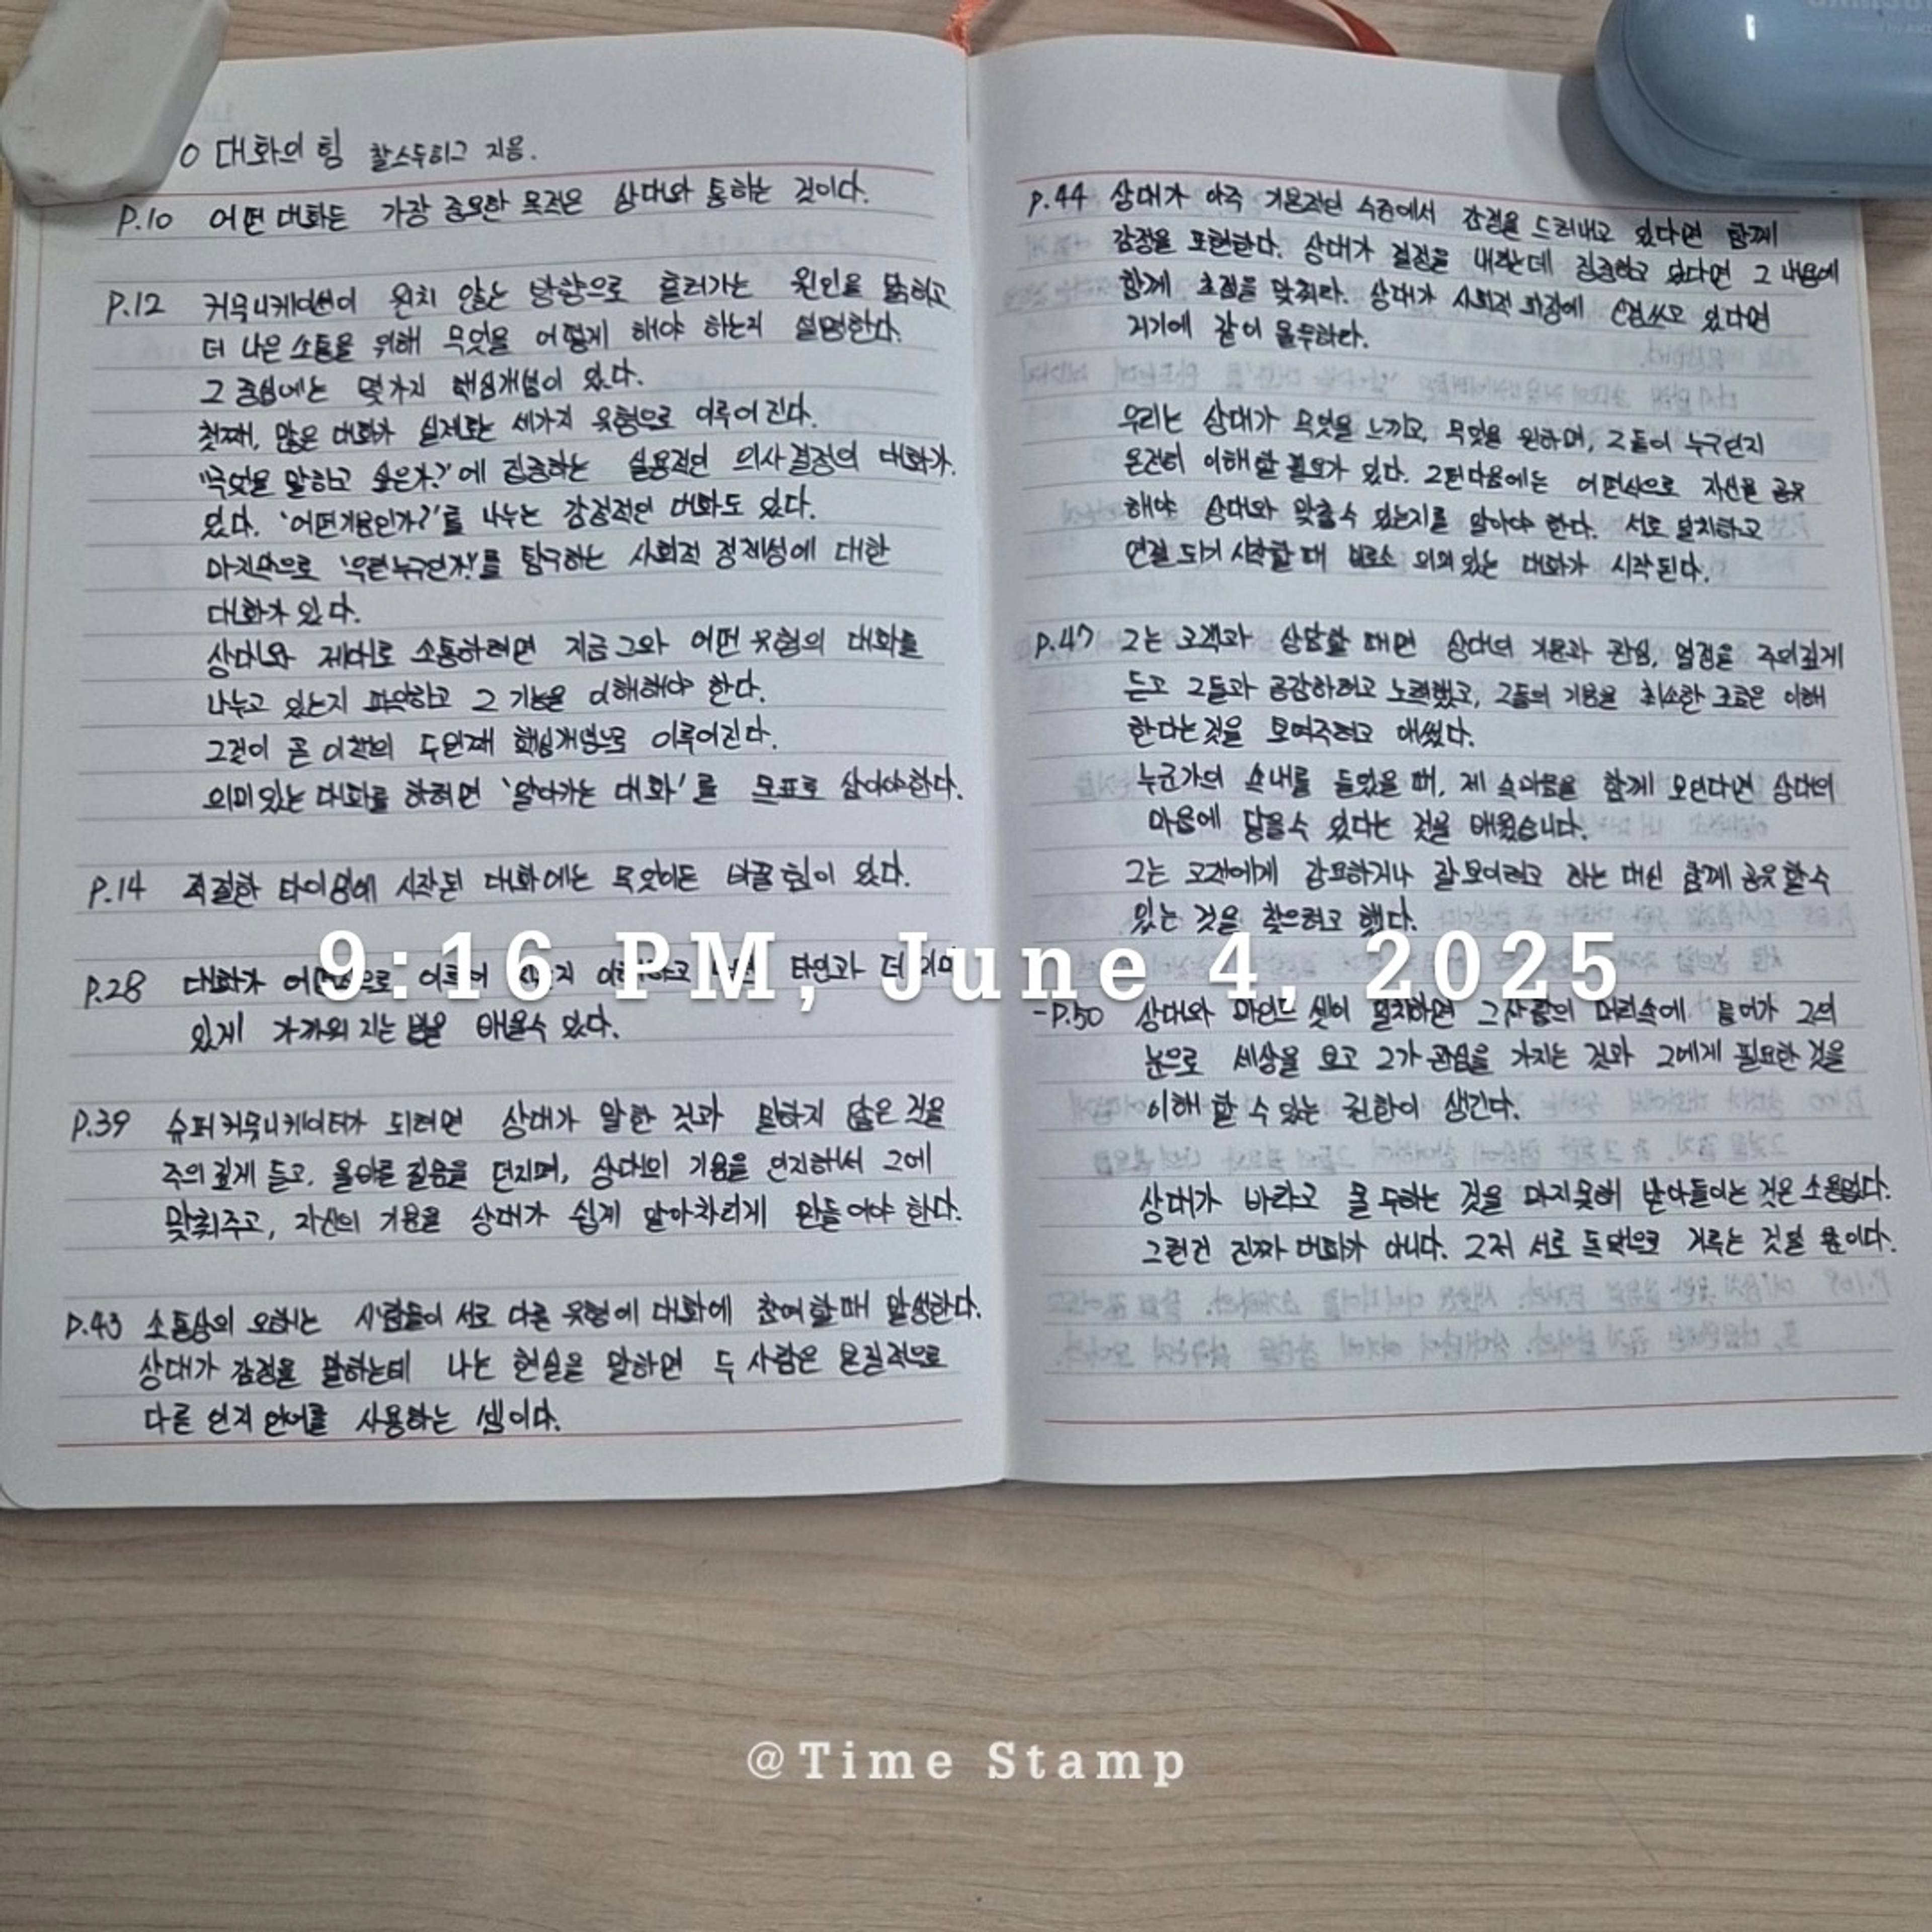 ○ 대화의 힘 찰스두히그 지음.
P.10 어떤 대화든 가장 중요한 목적은 상대와 통하는 것이다.
P.12 커뮤니케이션이 원치 않는 방향으로 흘러가는 원인을 밝히고
더 나은 소통을 위해 무엇을 어떻게 해야 하는지 설명한다.
그 중심에는 몇가지 핵심개념이 있다.
첫째, 많은 대화가 실제로는 세가지 유형으로 이루어진다.
'무엇을 말하고 싶은가?'에 집중하는 실용적인 의사결정의 대화가
있다. '어떤기분인가?'를 나누는 감정적인 대화도 있다.
마지막으로 '우린누구인가?'를 탐구하는 사회적 정체성에 대한
대화가 있다.
상대와 제대로 소통하려면 지금 그와 어떤 유형의 대화를
나누고 있는지 파악하고 그 기능을 이해해야 한다.
그것이 곧 이책의 두번째 핵심개념으로 이루어진다.
의미있는 대화를 하려면 '알아가는 대화'를 목표로 삼아야한다.
P.14 적절한 타이밍에 시작된 대화에는 무엇이든 바꿀 힘이 있다.
P.28 대화가 어떤식으로 이루어 지는지 이해하고 나면 타인과 더 의미
있게 가까워 지는 법을 배울수 있다.
P.39 슈퍼커뮤니케이터가 되려면 상대가 말한 것과 말하지 않은 것을
주의 깊게 듣고, 올바른 질문을 던지며, 상대의 기분을 인지해서 그에
맞춰주고, 자신의 기분을 상대가 쉽게 알아차리게 만들어야 한다.
P.43 소통상의 오해는 사람들이 서로 다른 유형에 대화에 참여할때 발생한다.
상대가 감정을 말하는데 나는 현실을 말하면 두 사람은 본질적으로
다른 인지 언어를 사용하는 셈이다.
P.44 상대가 아주 기본적인 수준에서 감정을 드러내고 있다면 함께
감정을 표현한다. 상대가 결정을 내리는데 집중하고 있다면 그 내용에
함께 초점을 맞춰라. 상대가 사회적 파장에 신경쓰고 있다면
거기에 같이 몰두하라.
우리는 상대가 무엇을 느끼고, 무엇을 원하며, 그들이 누구인지
온전히 이해할 필요가 있다. 그런다음에는 어떤식으로 자신을 공유
해야 상대와 맞출수 있는지를 알아야 한다. 서로 일치하고
연결 되기 시작할 때 비로소 의미있는 대화가 시작된다.
P.47 그는 고객과 상담할 때면 상대의 기분과 관심, 열정을 주의깊게
듣고 그들과 공감하려고 노력했고, 그들의 기분을 최소한 조금은 이해
한다는 것을 보여주려고 애썼다.
누군가의 속내를 들었을 때, 제 속마음을 함께 보인다면 상대의
마음에 닿을수 있다는 것을 배웠습니다.
그는 고객에게 강요하거나 잘보이려고 하는 대신 함께 공유할수
있는 것을 찾으려고 했다.
-P.50 상대와 마인드 셋이 일치하면 그사람의 머리속에 들어가 그의
눈으로 세상을 보고 그가 관심을 가지는 것과 그에게 필요한 것을
이해 할 수 있는 권한이 생긴다.
상대가 바라고 몰두하는 것을 마지못해 받아들이는 것은 소용없다.
그런건 진짜 대화가 아니다. 그저 서로 독백으로 겨루는 것일 뿐이다.
9:16 PM, June 4, 2025
@Time Stamp